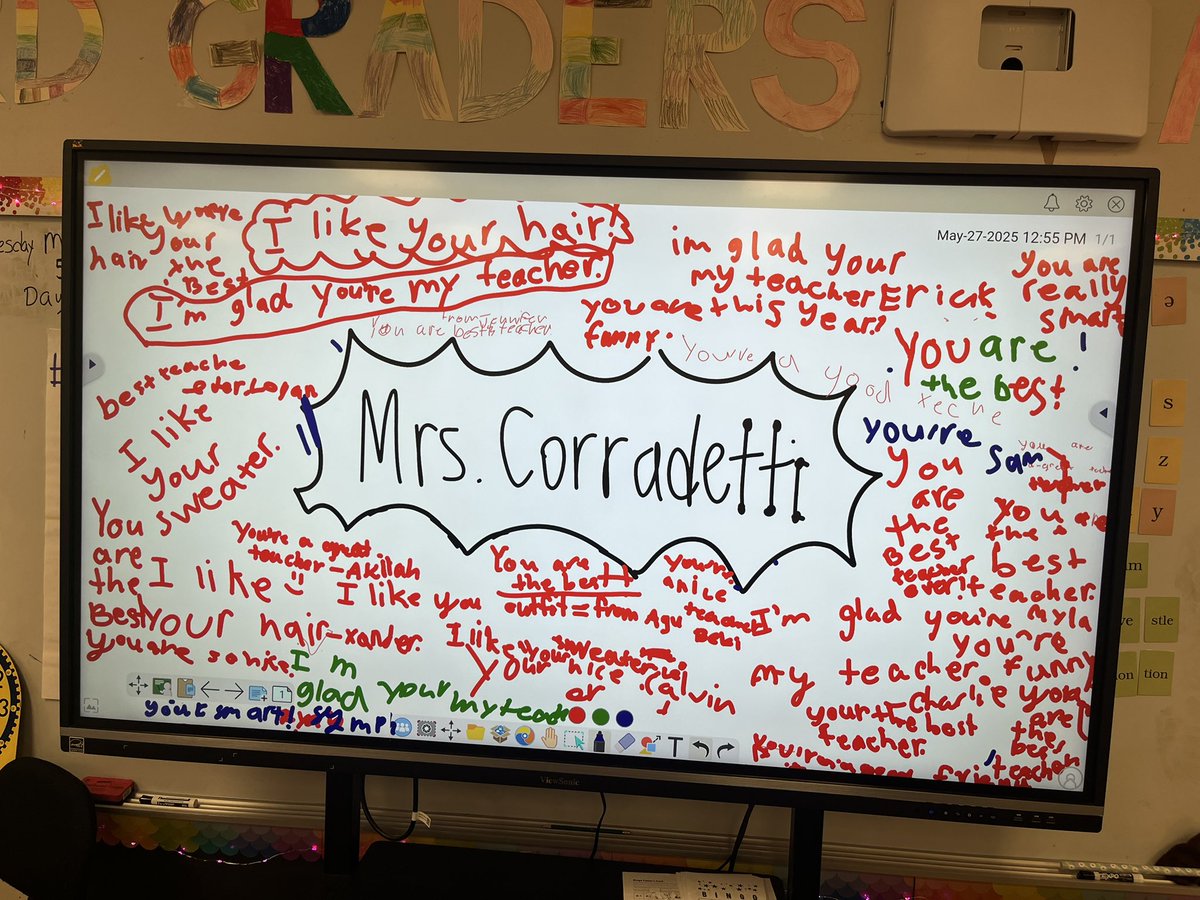 D GRADERS
I like your
hair
the
Best
I like your hair!
I'm glad you're my teacher.
im glad your
my teacher Erick
this year!
May-27-2025 12:55 PM 1/1
you are
really
smart
you are
funny.
from Jennifer
You are best teacher
You're a good
teche
You are
the best!
best teache
ever Logan
I like
your
sweater.
Mrs. Corradetti
you're
Sam
you
are
the
Best
teacher
ever!
you are
the
best
teacher.
Myla
You
are
the
Best
You're a great
teacher - Akilah
I like
your hair - xander.
you are so nice
I like you
You are
the best
outfit = from Agu
you're
a nice
teacher
I like your sweater
your nice
calvin
I'm glad you're
my teacher
you're
funny
Charlie
your the best
teacher.
you
are
the
best
teacher
I m
glad your my teach
your smart!
ViewSonic
s
z
y
stle
tion
BINGO